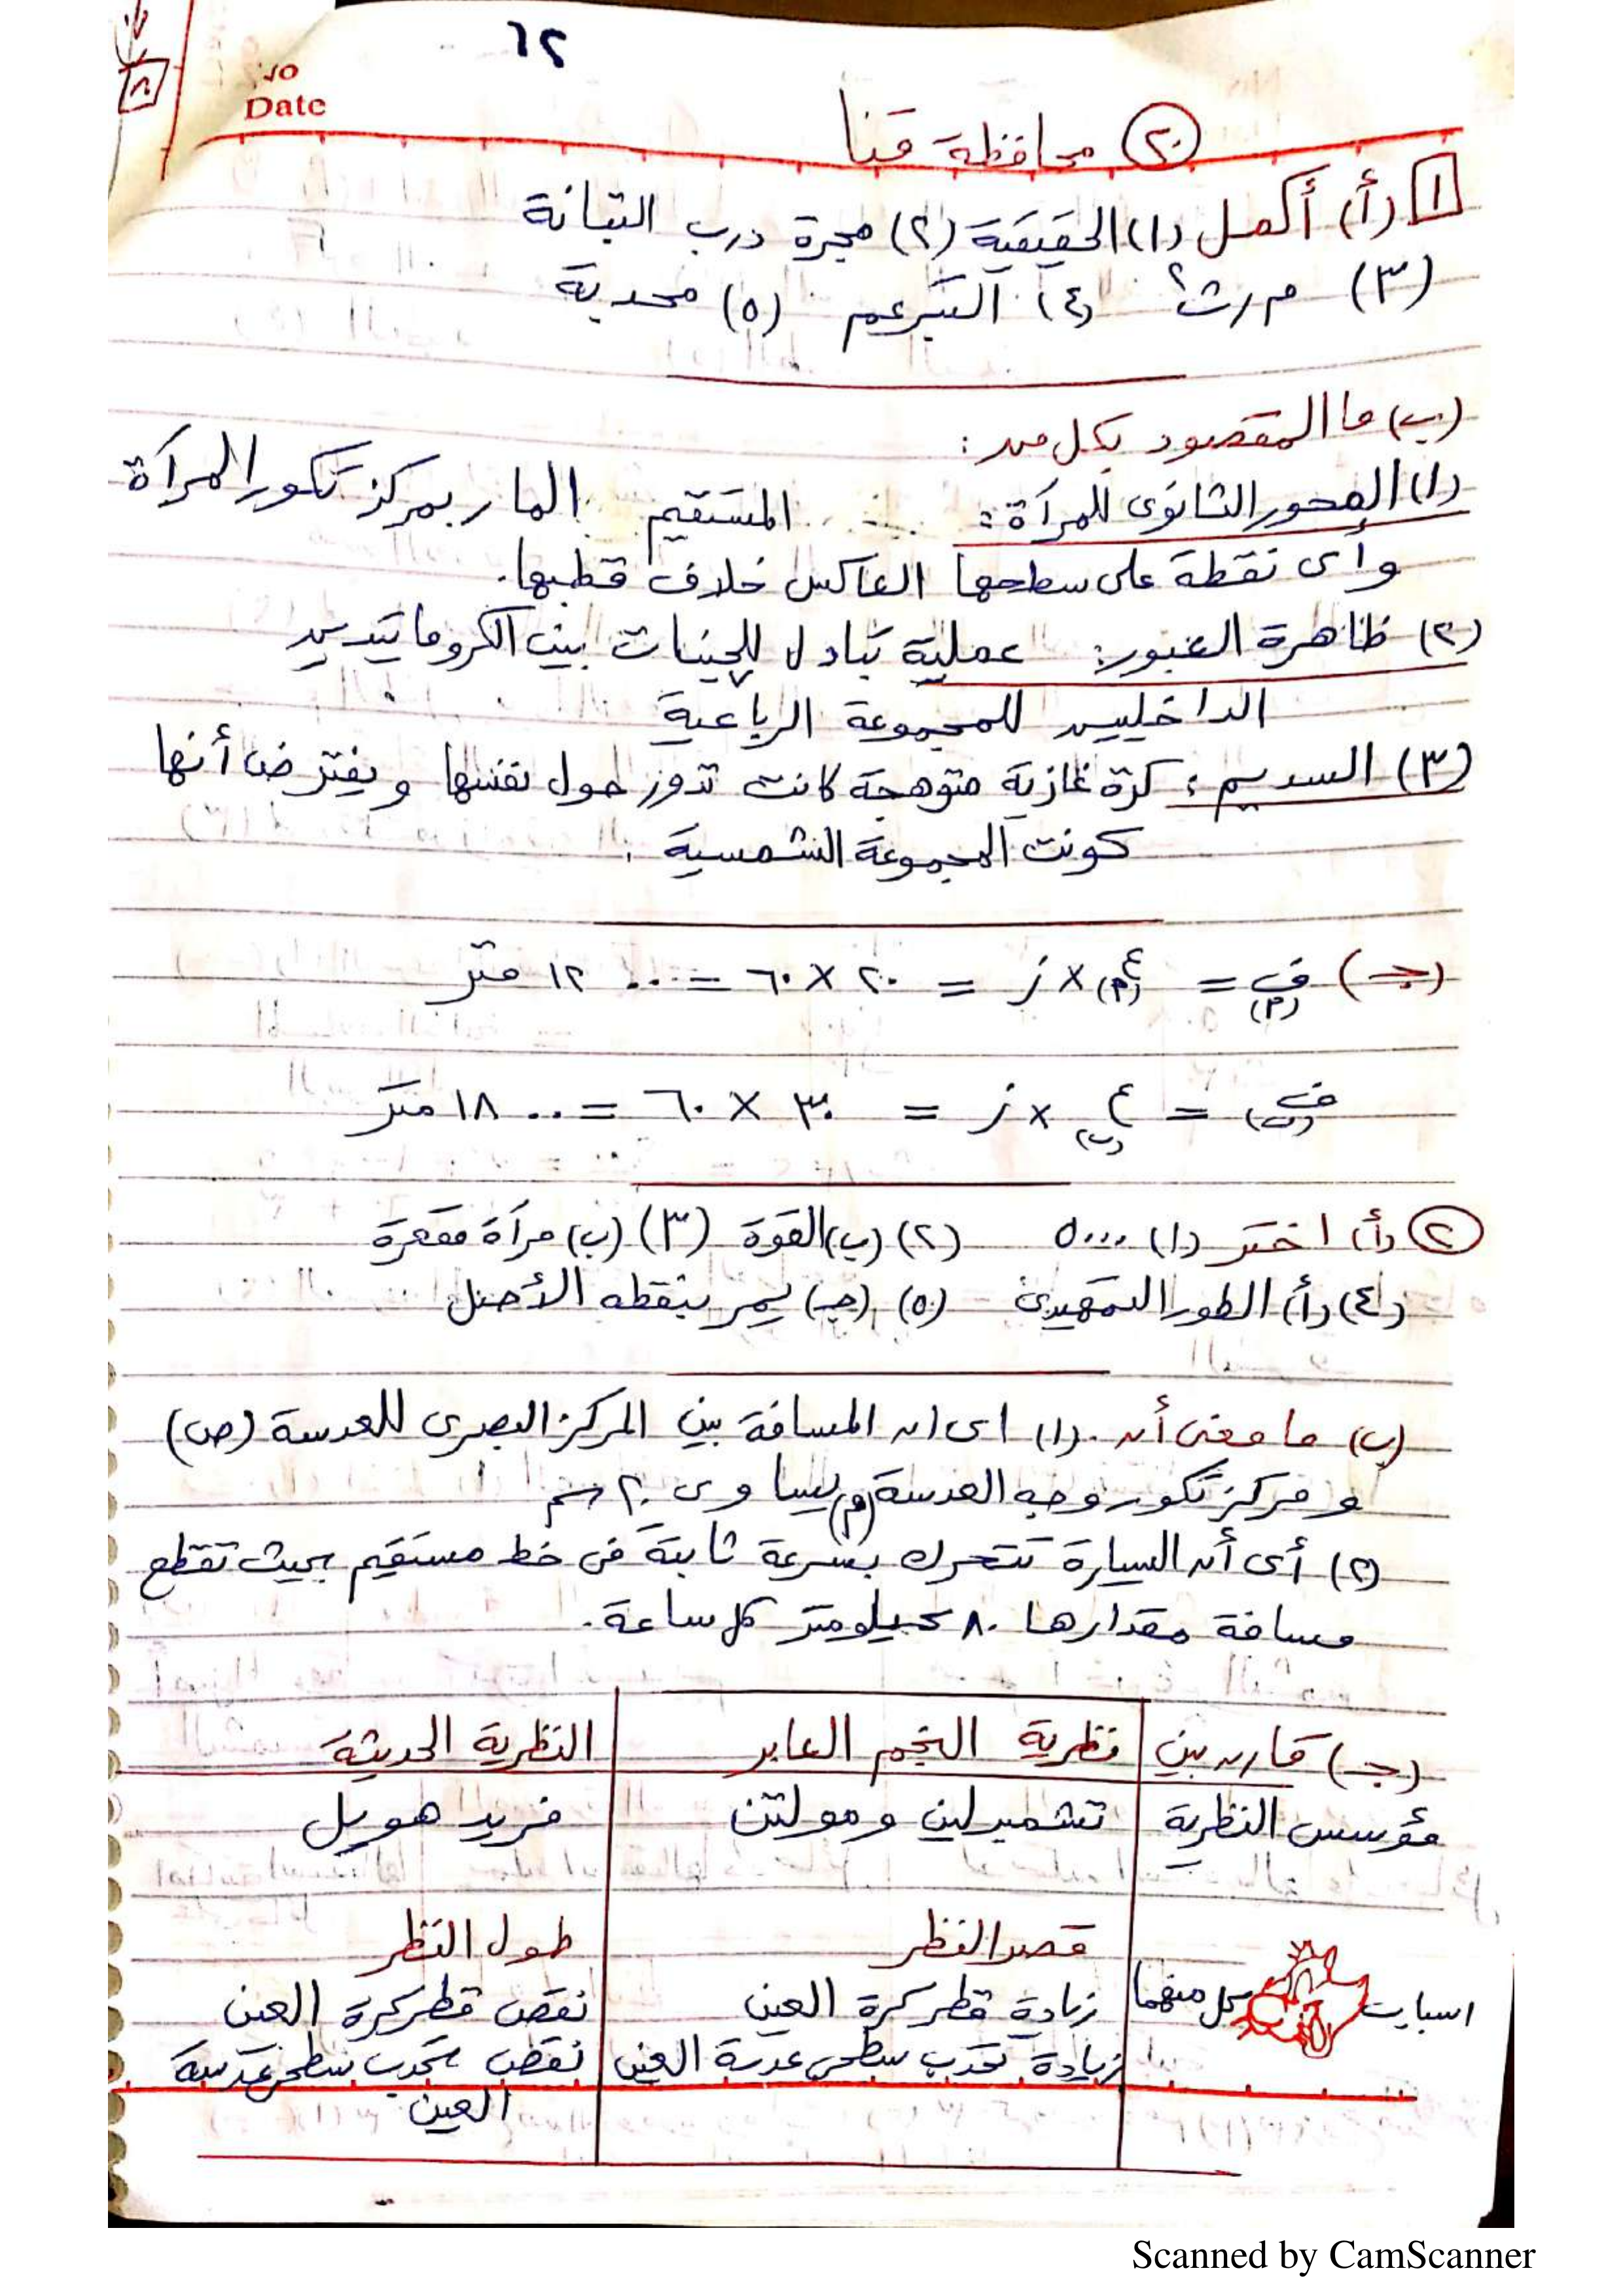 ٦٢
No
Date
(٢٠) محافظة قنا
١ (أ) أكمل (١) الحقيقية (٢) مجرة درب التبانة
(٣) م/ث٢ (٤) التبرعم (٥) محدبة
(ب) ما المقصود بكل من :
(١) المحور الثانوى للمرآة : المستقيم المار بمركز تكور المرآة
وأى نقطة على سطحها العاكس خلاف قطبها.
(٢) ظاهرة العبور: عملية تبادل للجينات بين الكروماتيدين
الداخليين للمجموعة الرباعية
(٣) السديم : كرة غازية متوهجة كانت تدور حول نفسها ويفترض أنها
كونت المجموعة الشمسية .
(جـ) ف(م) = ع(م) × ز = ٢٠ × ٦٠ = ١٢٠٠ متر
ف(ب) = ع(ب) × ز = ٣٠ × ٦٠ = ١٨٠٠ متر
(٢) (أ) اختر (١) ٥٠٠٠ (٢) (ب) القوة (٣) (ب) مرآة مقعرة
(٤) (أ) الطور التمهيدى (٥) (جـ) يمر بنقطه الأصل
(ب) ما معنى أن .(١) اى ان المسافة بين المركز البصرى للعدسة (ص)
ومركز تكور وجه العدسة (م) يساوى ٢٠ سم
(٢) أى أن السيارة تتحرك بسرعة ثابتة فى خط مستقيم بحيث تقطع
مسافة مقدارها ٨٠ كيلومتر كل ساعة.
(جـ) قارن بين نظرية النجم العابر النظرية الحديثة
مؤسس النظرية تشمبرلين ومولتن فريد هويل
قصر النظر طول النظر
اسباب كل منهما زيادة قطر كرة العين نقص قطر كرة العين
زيادة تحدب سطحى عدسة العين نقص تحدب سطحى عدسة
العين
Scanned by CamScanner